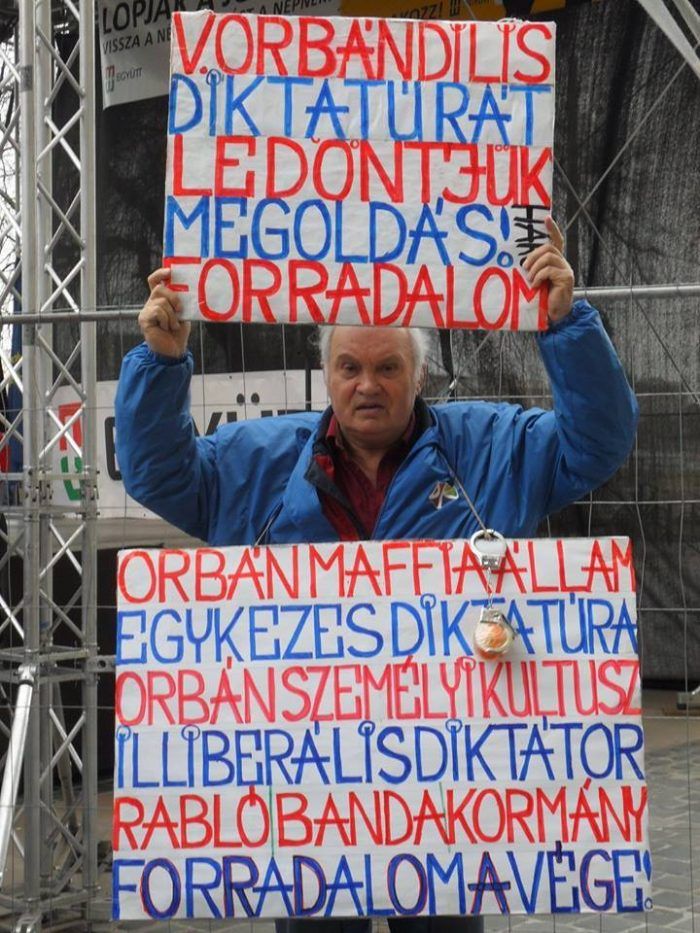 LOPJÁK A
VISSZA A NÉPNEK A NÉPNEK
KOZZ!
EGYÜTT
V.ORBÁNDILIS
DIKTATÚRÁT
LEDÖNTJÜK
MEGOLDÁS!
FORRADALOM
ORBÁN MAFFIAÁLLAM
EGYKEZES DIKTATÚRA
ORBÁN SZEMÉLYI KULTUSZ
ILLIBERÁLIS DIKTÁTOR
RABLÓ BANDA KORMÁNY
FORRADALOM A VÉGE!